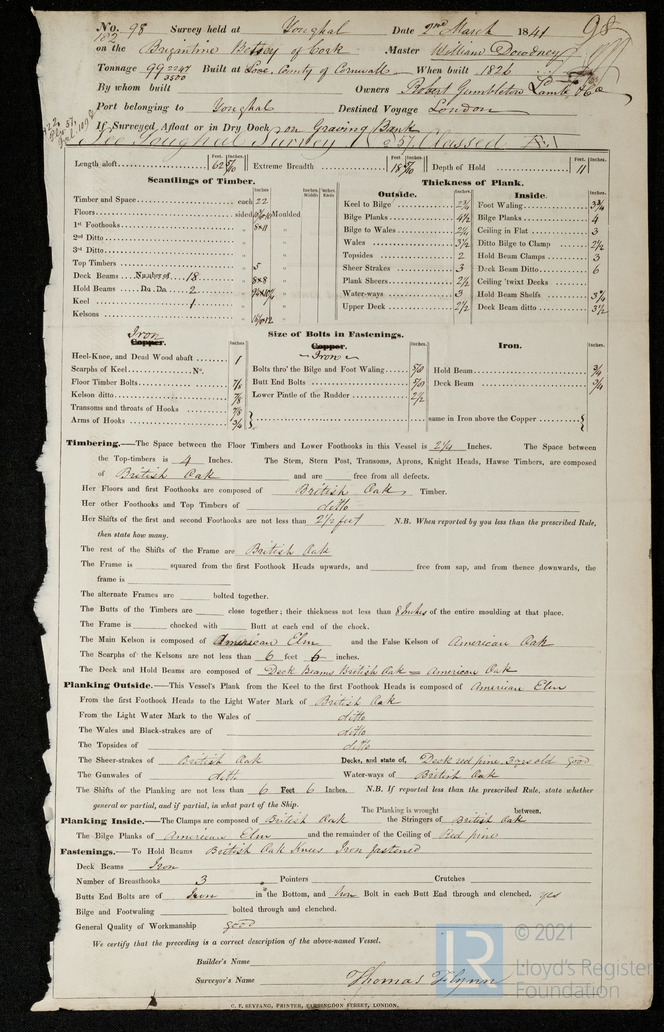 No. 98 Survey held at Youghal Date 2nd March 1841 98
182
on the Brigantine Betsey of Cork Master William Dowdney
Tonnage 99 2247/3500 Built at Looe, County of Cornwall When built 1826
By whom built Owners Robert Gumbleton Lamb & Co
Port belonging to Youghal Destined Voyage London
If Surveyed Afloat or in Dry Dock on Graving Bank
See Youghal Survey Classed Æ1
Length aloft Feet. Inches. 62 Extreme Breadth Feet. Inches. 18 Depth of Hold Feet. Inches. 11
Scantlings of Timber.
Inches Inches Middle Inches Ends
Timber and Space each 22
Floors sided Moulded
1st Foothooks 8x11
2nd Ditto
3rd Ditto
Top Timbers 5
Deck Beams Number of 18 8x8
Hold Beams Do. Do. 2
Keel 1
Kelsons
Thickness of Plank.
Outside. Inches
Keel to Bilge 2¾
Bilge Planks 4½
Bilge to Wales 2¾
Wales 3½
Topsides 2
Sheer Strakes 3
Plank Sheers 2½
Water-ways 3
Upper Deck 2½
Inside. Inches.
Foot Waling 3¾
Bilge Planks 4
Ceiling in Flat 3
Ditto Bilge to Clamp 2½
Hold Beam Clamps 3
Deck Beam Ditto 6
Ceiling 'twixt Decks
Hold Beam Shelfs 3¾
Deck Beam ditto 3½
Size of Bolts in Fastenings.
Iron
Copper. Inches
Heel-Knee, and Dead Wood abaft 1
Scarphs of Keel No.
Floor Timber Bolts 7/8
Kelson ditto 7/8
Transoms and throats of Hooks 7/8
Arms of Hooks ¾
Copper. Inches.
Iron
Bolts thro' the Bilge and Foot Waling
Butt End Bolts
Lower Pintle of the Rudder 2½
Iron. Inches.
Hold Beam ¾
Deck Beam ¾
same in Iron above the Copper
Timbering.—The Space between the Floor Timbers and Lower Foothooks in this Vessel is 2¼ Inches. The Space between
the Top-timbers is 4 Inches. The Stem, Stern Post, Transoms, Aprons, Knight Heads, Hawse Timbers, are composed
of British Oak and are free from all defects.
Her Floors and first Foothooks are composed of British Oak, Timber.
Her other Foothooks and Top Timbers of ditto
Her Shifts of the first and second Foothooks are not less than 2½ feet N.B. When reported by you less than the prescribed Rule,
then state how many.
The rest of the Shifts of the Frame are British Oak
The Frame is squared from the first Foothook Heads upwards, and free from sap, and from thence downwards, the
frame is
The alternate Frames are bolted together.
The Butts of the Timbers are close together; their thickness not less than 8 Inches of the entire moulding at that place.
The Frame is chocked with Butt at each end of the chock.
The Main Kelson is composed of American Elm and the False Kelson of American Oak
The Scarphs of the Kelsons are not less than 6 feet 6 inches.
The Deck and Hold Beams are composed of Deck Beams British Oak = American Oak
Planking Outside.—This Vessel's Plank from the Keel to the first Foothook Heads is composed of American Elm
From the first Foothook Heads to the Light Water Mark of British Oak
From the Light Water Mark to the Wales of ditto
The Wales and Black-strakes are of ditto
The Topsides of ditto
The Sheer-strakes of British Oak Decks, and state of, Deck red pine 3 yrs old good
The Gunwales of ditto Water-ways of British Oak
The Shifts of the Planking are not less than 6 Feet 6 Inches. N.B. If reported less than the prescribed Rule, state whether
general or partial, and if partial, in what part of the Ship. The Planking is wrought between.
Planking Inside.—The Clamps are composed of British Oak the Stringers of British Oak
The Bilge Planks of American Elm and the remainder of the Ceiling of Red pine
Fastenings.—To Hold Beams British Oak Knees Iron fastened
Deck Beams Iron
Number of Breasthooks 3 Pointers Crutches
Butts End Bolts are of Iron in the Bottom, and Iron Bolt in each Butt End through and clenched. yes
Bilge and Footwaling bolted through and clenched.
General Quality of Workmanship good
We certify that the preceding is a correct description of the above-named Vessel.
Builder's Name
Surveyor's Name Thomas Flynn
C. F. SEYFANG, PRINTER, FARRINGDON STREET, LONDON.
LR © 2021
Lloyd's Register
Foundation